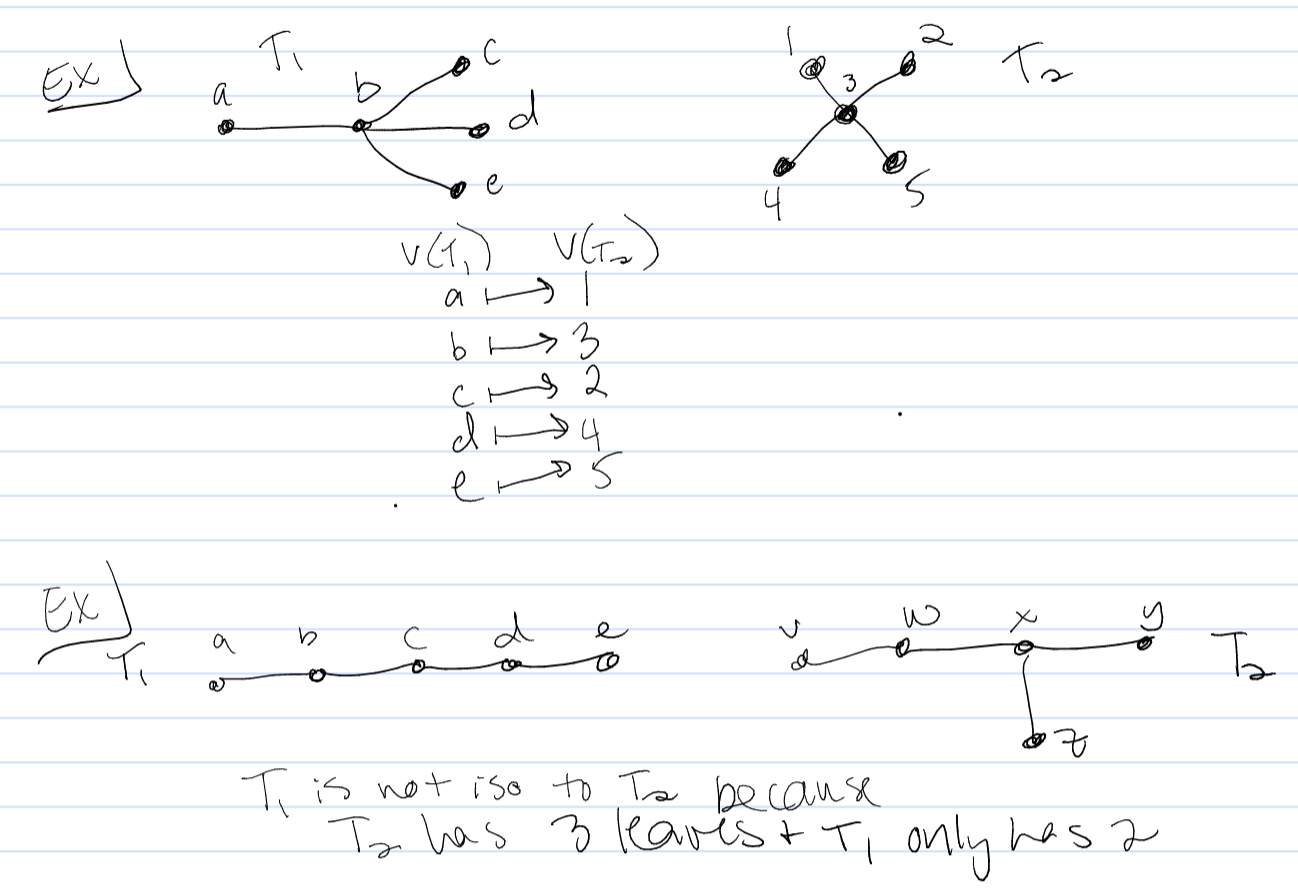 Ex) T₁ T₂
a b c d e
1 2 3 4 5
V(T₁) V(T₂)
a ↦ 1
b ↦ 3
c ↦ 2
d ↦ 4
e ↦ 5
Ex)
T₁ a b c d e v w x y z T₂
T₁ is not iso to T₂ because
T₂ has 3 leaves + T₁ only has 2